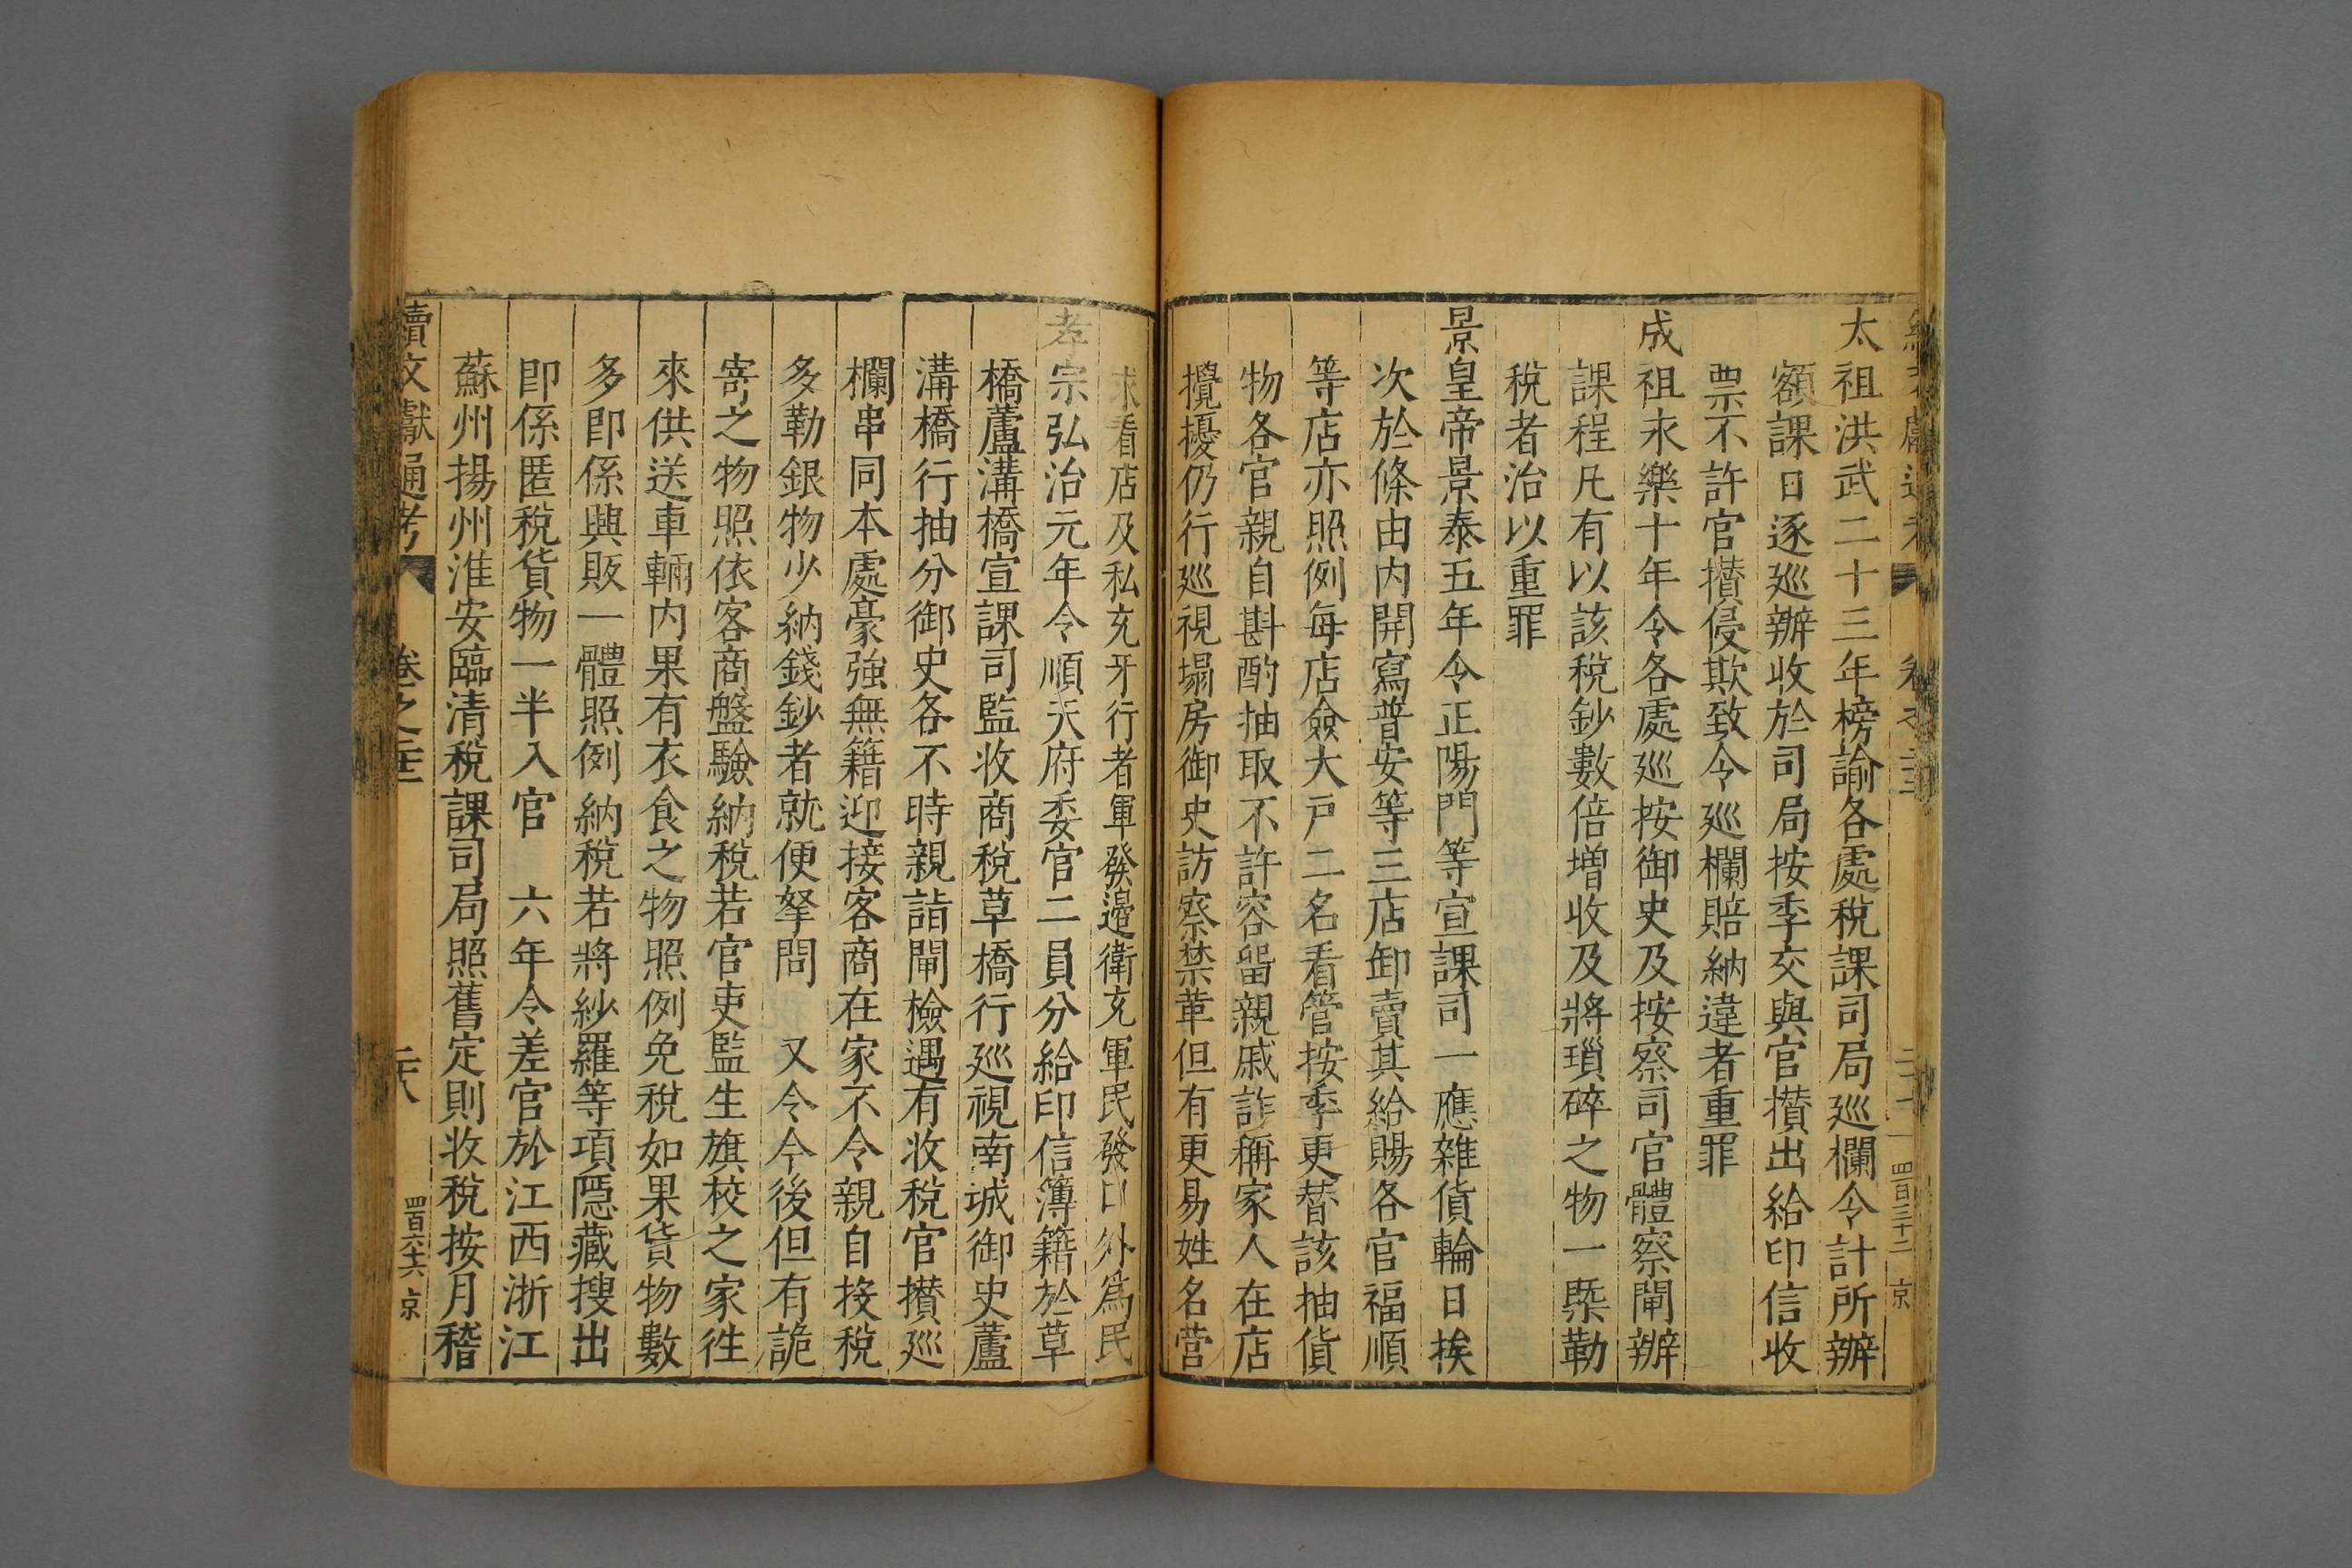 太祖洪武二十三年榜諭各處稅課司局廵欄令計所辦
額課日逐廵辦收於司局按季交與官攅出給印信收
票不許官攅侵欺致令廵欄賠納違者重罪
成祖永樂十年令各處廵按御史及按察司官體察閘辦
課程凡有以該稅鈔數倍增收及將瑣碎之物一槩勒
稅者治以重罪
景皇帝景泰五年令正陽門等宣課司一應雜貨輪日挨
次於條由内開寫普安等三店卸賣其給賜各官福順
等店亦照例每店僉大戸二名看管按季更替該抽貨
物各官親自斟酌抽取不許容留親戚詐稱家人在店
攪擾仍行廵視塌房御史訪察禁革但有更易姓名營
求看店及私充牙行者軍發邊衛充軍民發口外爲民
孝宗弘治元年令順天府委官二員分給印信簿籍於草
橋蘆溝橋宣課司監收商稅草橋行廵視南城御史蘆
溝橋行抽分御史各不時親詣閘檢遇有收稅官攅廵
欄串同本處豪強無籍迎接客商在家不令親自投稅
多勒銀物少納錢鈔者就便拏問　又令今後但有詭
寄之物照依客商盤驗納稅若官吏監生旗校之家徃
來供送車輛内果有衣食之物照例免稅如果貨物數
多卽係興販一體照例納稅若將紗羅等項隱藏搜出
卽係匿稅貨物一半入官　六年令差官於江西浙江
蘇州揚州淮安臨清稅課司局照舊定則收稅按月稽
續文獻通考　卷之二十三　二十八　四百六十六　京